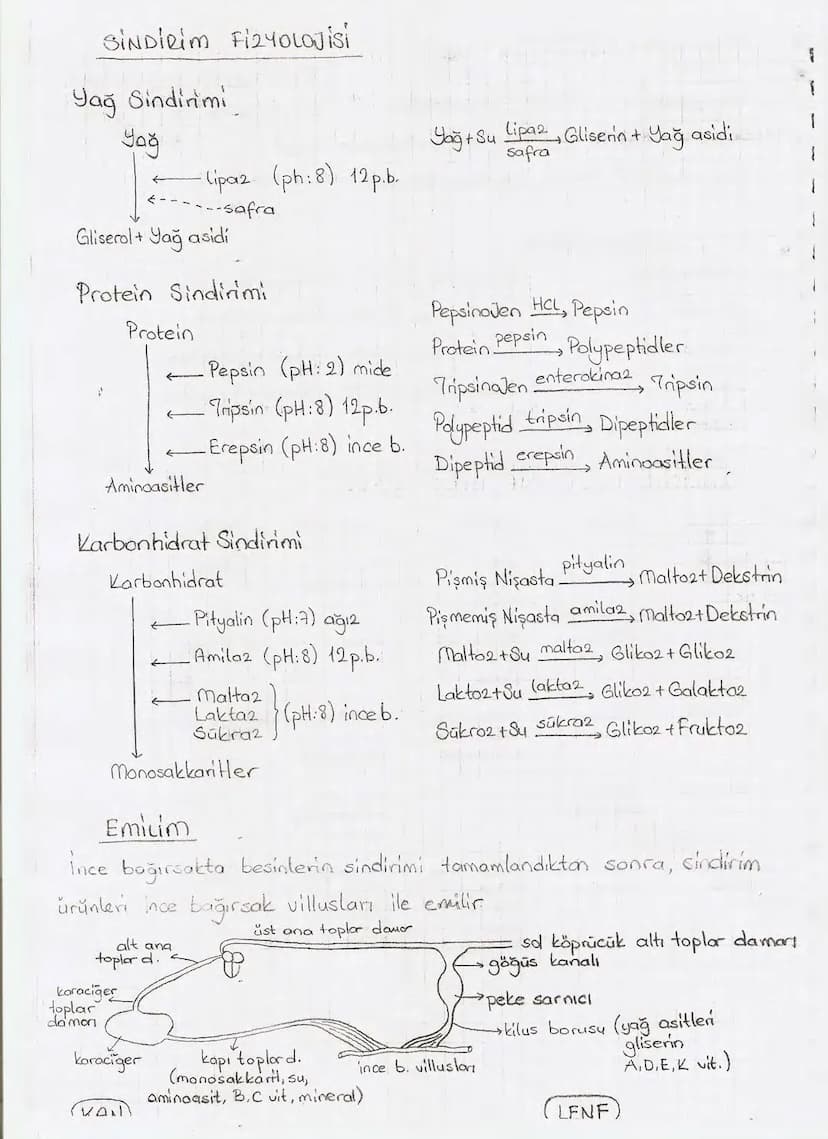 SİNDİRİM FİZYOLOJİSİ
Yağ Sindirimi
Yağ
Lipaz (ph:8) 12p.b.
safra
Gliserol + Yağ asidi
Yağ + Su Lipaz Gliserin + Yağ asidi
safra
Protein Sindirimi
Protein
Pepsin (pH:2) mide
Tripsin (pH:8) 12p.b.
Erepsin (pH:8) ince b.
Aminoasitler
Pepsinojen HCL Pepsin
Protein pepsin Polypeptidler
Tripsinojen enterokinaz Tripsin
Polypeptid tripsin Dipeptidler
Dipeptid erepsin Aminoasitler
Karbonhidrat Sindirimi
Karbonhidrat
Pityalin (pH:7) ağız
Amilaz (pH:8) 12p.b.
Maltaz
Laktaz (pH:8) ince b.
Sükraz
Monosakkaritler
Pişmiş Nişasta pityalin Maltoz + Dekstrin
Pişmemiş Nişasta amilaz Maltoz + Dekstrin
Maltoz + Su maltaz Glikoz + Glikoz
Laktoz + Su laktaz Glikoz + Galaktoz
Sükroz + Su sükraz Glikoz + Fruktoz
EMİLİM
İnce bağırsakta besinlerin sindirimi tamamlandıktan sonra, sindirim
ürünleri ince bağırsak villusları ile emilir
üst ana toplar damar
alt ana
toplar d.
sol köprücük altı toplar damarı
göğüs kanalı
karaciğer
toplar
damarı
peke sarnıcı
kilus borusu (yağ asitleri
gliserin
A,D,E,K vit.)
karaciğer
kapı toplar d.
(monosakkarit, su,
aminoasit, B,C vit, mineral)
ince b. villusları
KAN
LENF